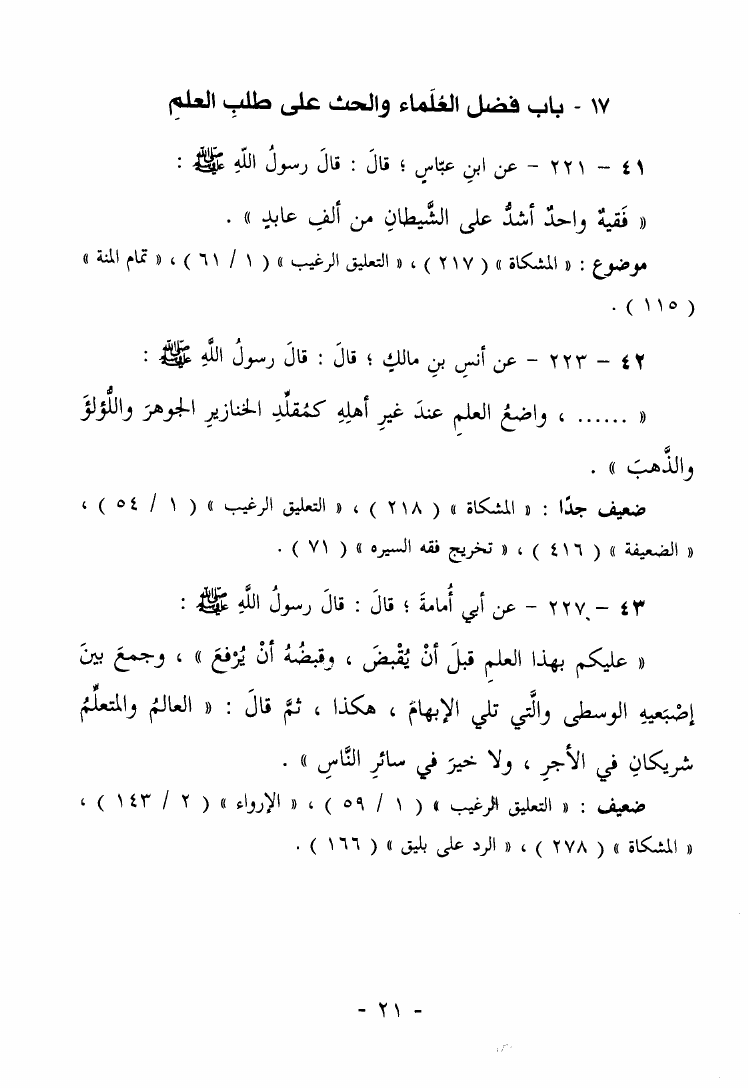 ١٧ - باب فضل العُلَماء والحث على طلبِ العلمِ
٤١ - ٢٢١ - عن ابنِ عبّاسٍ ؛ قالَ : قالَ رسولُ اللّهِ ﷺ :
« فَقيهٌ واحدٌ أشدُّ على الشَّيطانِ من ألفِ عابدٍ » .
موضوع : « المشكاة » ( ٢١٧ ) ، « التعليق الرغيب » ( ١ / ٦١ ) ، « تمام المنة »
( ١١٥ ) .
٤٢ - ٢٢٣ - عن أنسِ بنِ مالكٍ ؛ قالَ : قالَ رسولُ اللَّهِ ﷺ :
« ...... ، واضعُ العلمِ عندَ غيرِ أهلِهِ كمُقلِّدِ الخنازيرِ الجوهرَ واللُّؤلؤَ
والذَّهبَ » .
ضعيف جدًا : « المشكاة » ( ٢١٨ ) ، « التعليق الرغيب » ( ١ / ٥٤ ) ،
« الضعيفة » ( ٤١٦ ) ، « تخريج فقه السيره » ( ٧١ ) .
٤٣ - ٢٢٧ - عن أبي أُمامةَ ؛ قالَ : قالَ رسولُ اللَّهِ ﷺ :
« عليكم بهذا العلمِ قبلَ أنْ يُقْبضَ ، وقبضُهُ أنْ يُرْفعَ » ، وجمعَ بينَ
إصْبَعيهِ الوسطى والَّتي تلي الإبهامَ ، هكذا ، ثمَّ قالَ : « العالمُ والمتعلِّمُ
شريكانِ في الأجرِ ، ولا خيرَ في سائرِ النَّاسِ » .
ضعيف : « التعليق الرغيب » ( ١ / ٥٩ ) ، « الإرواء » ( ٢ / ١٤٣ ) ،
« المشكاة » ( ٢٧٨ ) ، « الرد على بليق » ( ١٦٦ ) .
- ٢١ -